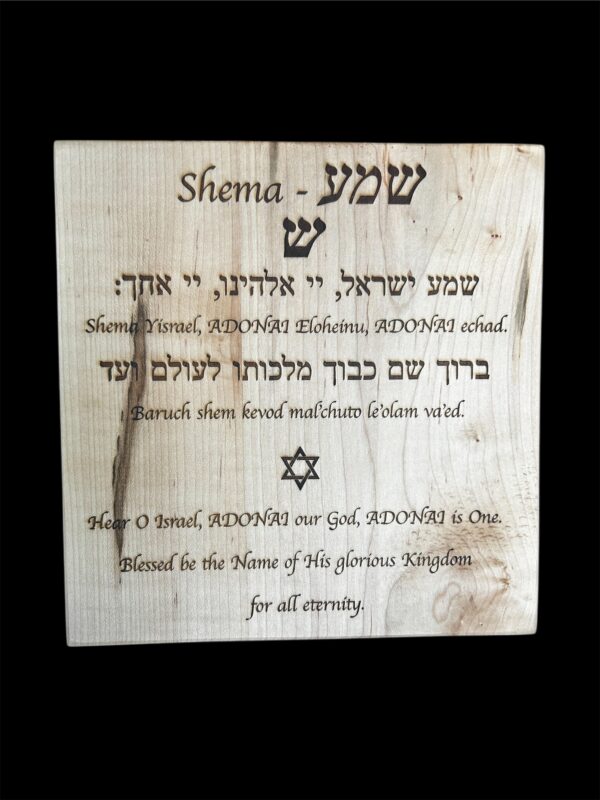 Shema - שמע
ש
שמע ישראל, יי אלהינו, יי אחך:
Shema Yisrael, ADONAI Eloheinu, ADONAI echad.
ברוך שם כבוך מלכותו לעולם ועד
Baruch shem kevod mal'chuto le'olam va'ed.
Hear O Israel, ADONAI our God, ADONAI is One.
Blessed be the Name of His glorious Kingdom
for all eternity.